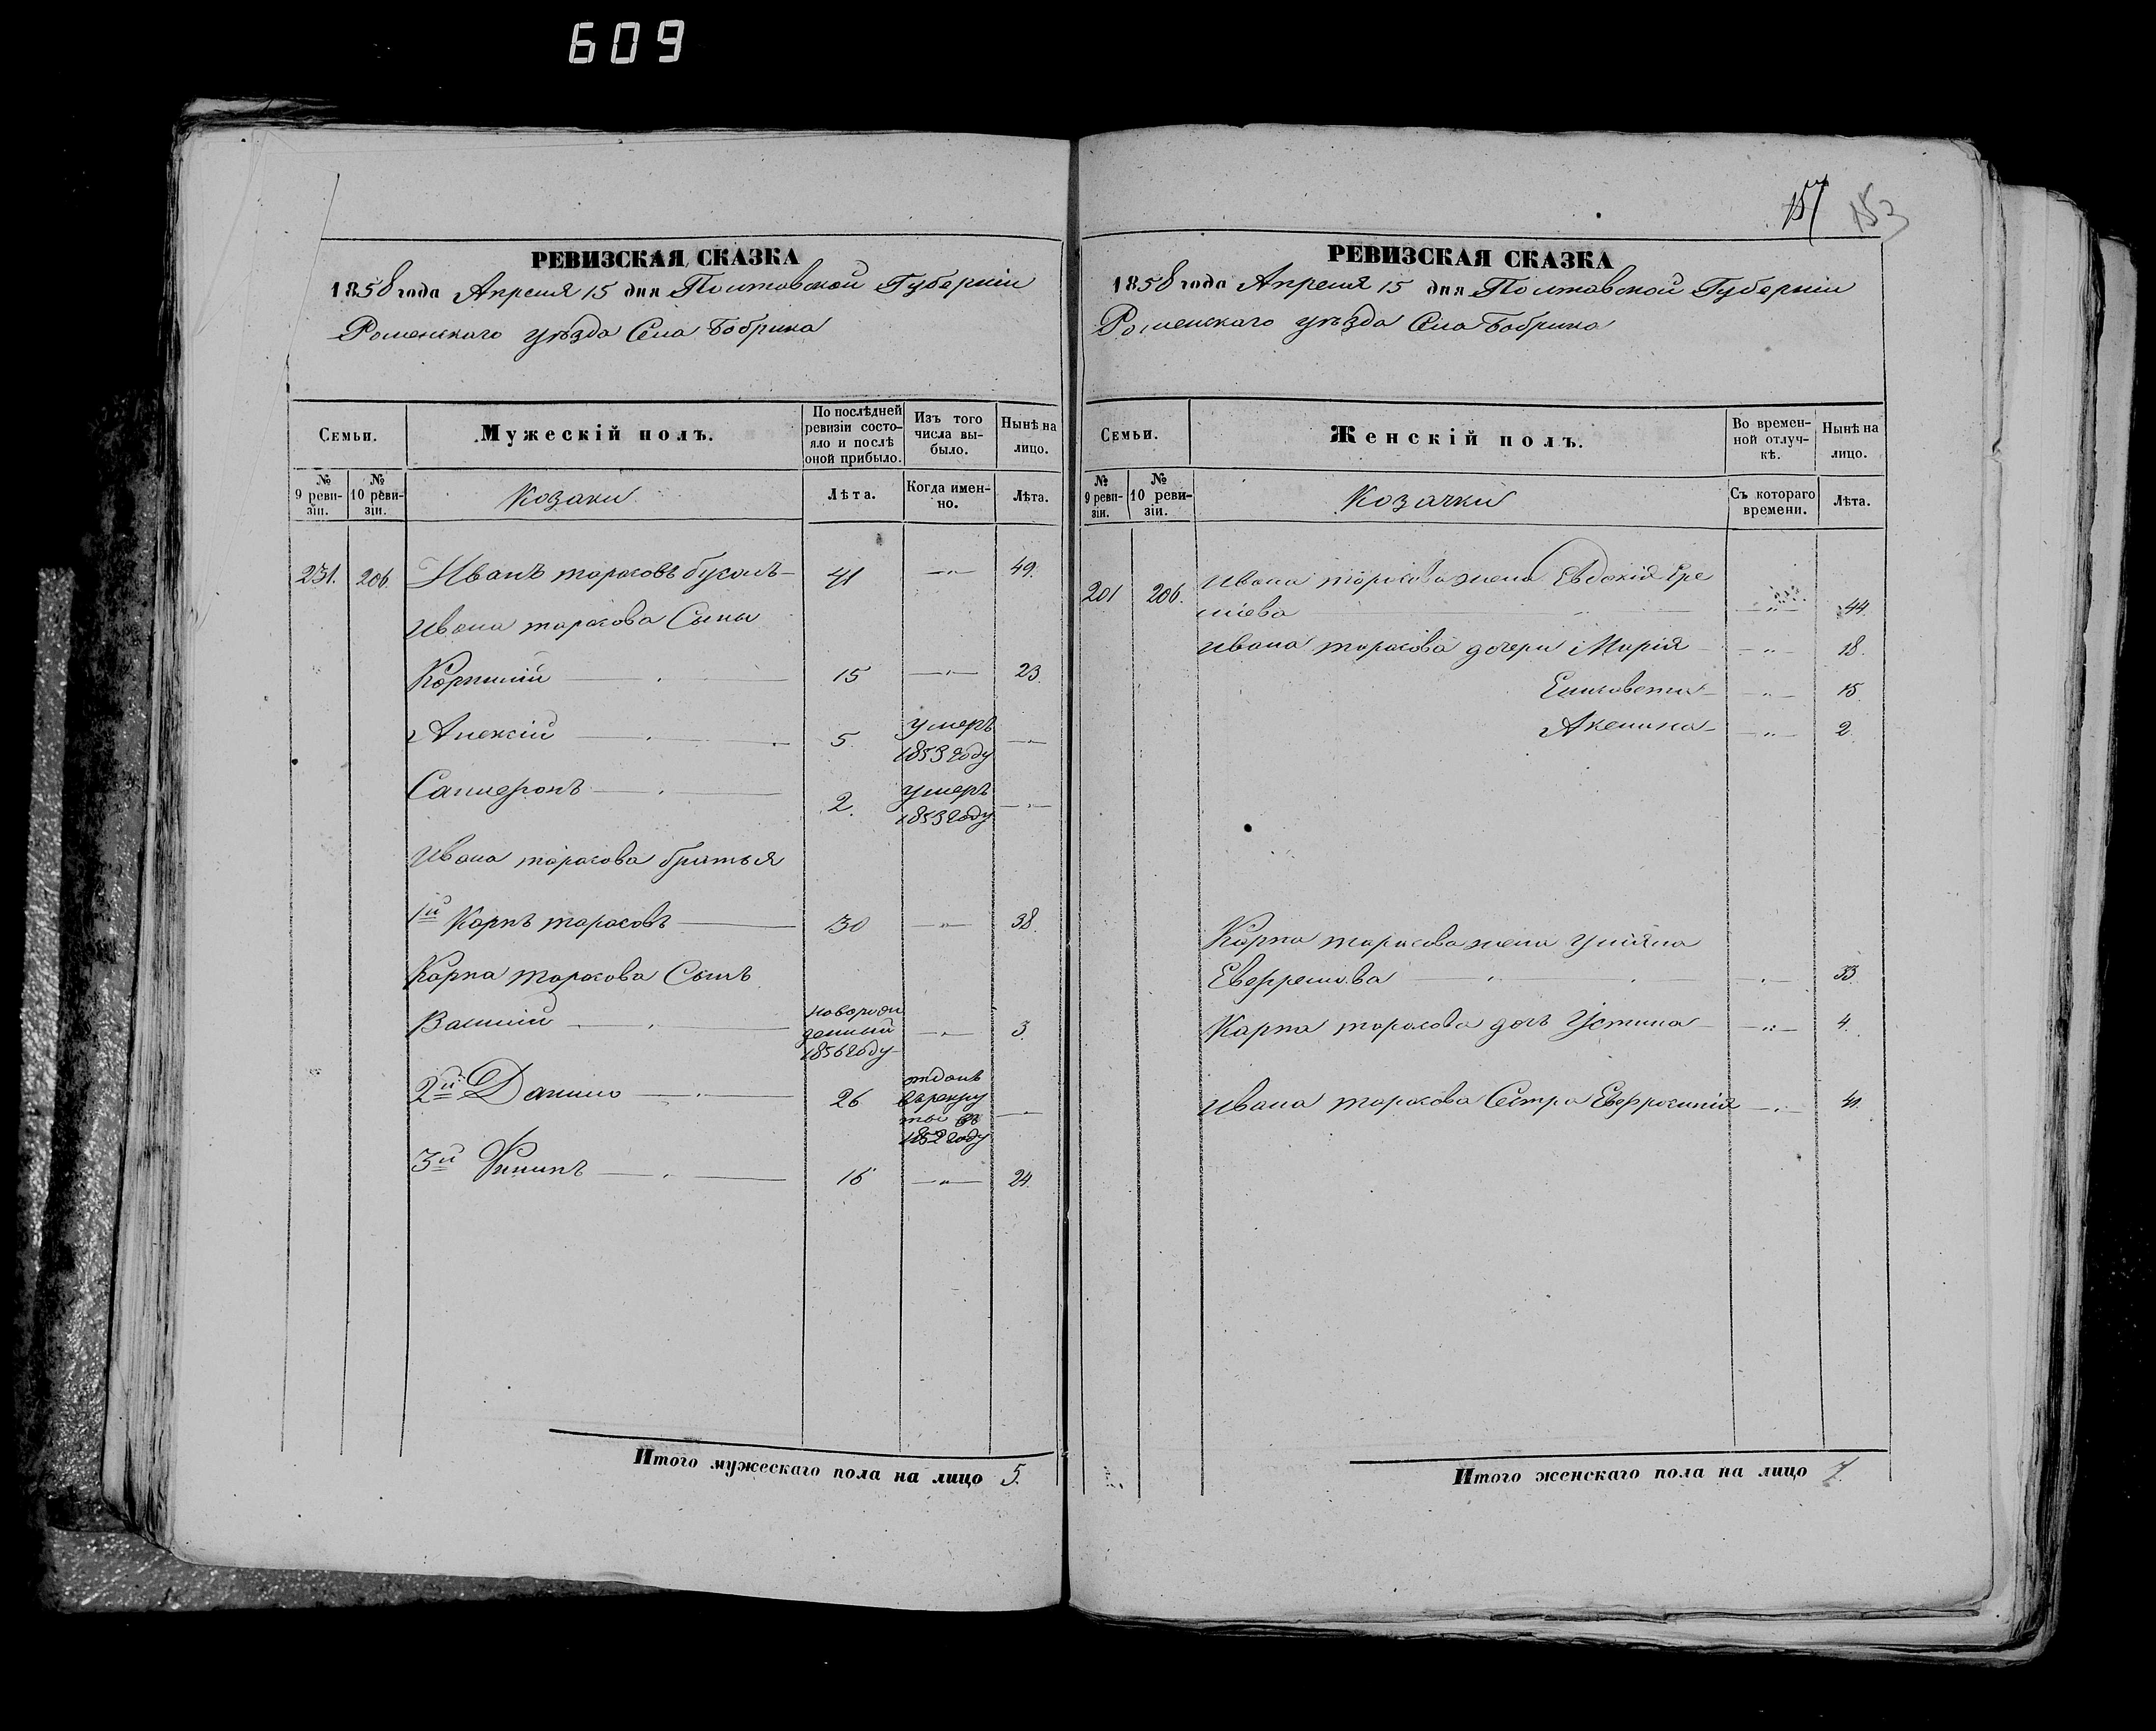 609
РЕВИЗСКАЯ СКАЗКА
1858 года Апреля 15 дня Полтавской Губерніи
Роменскаго уѣзда Села Бобрика
Семьи.
Мужескій полъ.
По послѣдней ревизіи состояло и послѣ оной прибыло.
Изъ того числа выбыло.
Нынѣ на лицо.
№ 9 ревизіи.
№ 10 ревизіи.
Козаки
Лѣта.
Когда именно.
Лѣта.
231. 206. Иванъ тарасовъ 41 — " — 49.
Ивана тарасова Сыны
Корнилій 15 — " — 23.
Алексій 5. умеръ 1853 году — " —
2. умеръ 1853 году — " —
Ивана тарасова братья
1й Карпъ тарасовъ 30 — " — 38.
Карпа тарасова Сынъ
Василій новорожденный 1856 году — " — 3.
2й Данило 26 отданъ в рекруты въ 1852 году — " —
3й Филипъ 16 — " — 24.
Итого мужескаго пола на лицо 5.
157 153
РЕВИЗСКАЯ СКАЗКА
1858 года Апреля 15 дня Полтавской Губерніи
Роменскаго уѣзда Села Бобрика
Семьи.
Женскій полъ.
Во временной отлучкѣ.
Нынѣ на лицо.
№ 9 ревизіи.
№ 10 ревизіи.
Козачки
Съ котораго времени.
Лѣта.
201 206. Ивана тарасова жена Евдокія
— " — 44.
Ивана тарасова дочери Марія — " — 18.
Елисавета — " — 15
Акелина — " — 2.
Карпа тарасова жена Уліяна
— " — 33.
Карпа тарасова дочь Устина — " — 4.
Ивана тарасова Сестра Евфросинія — " — 41.
Итого женскаго пола на лицо 7.